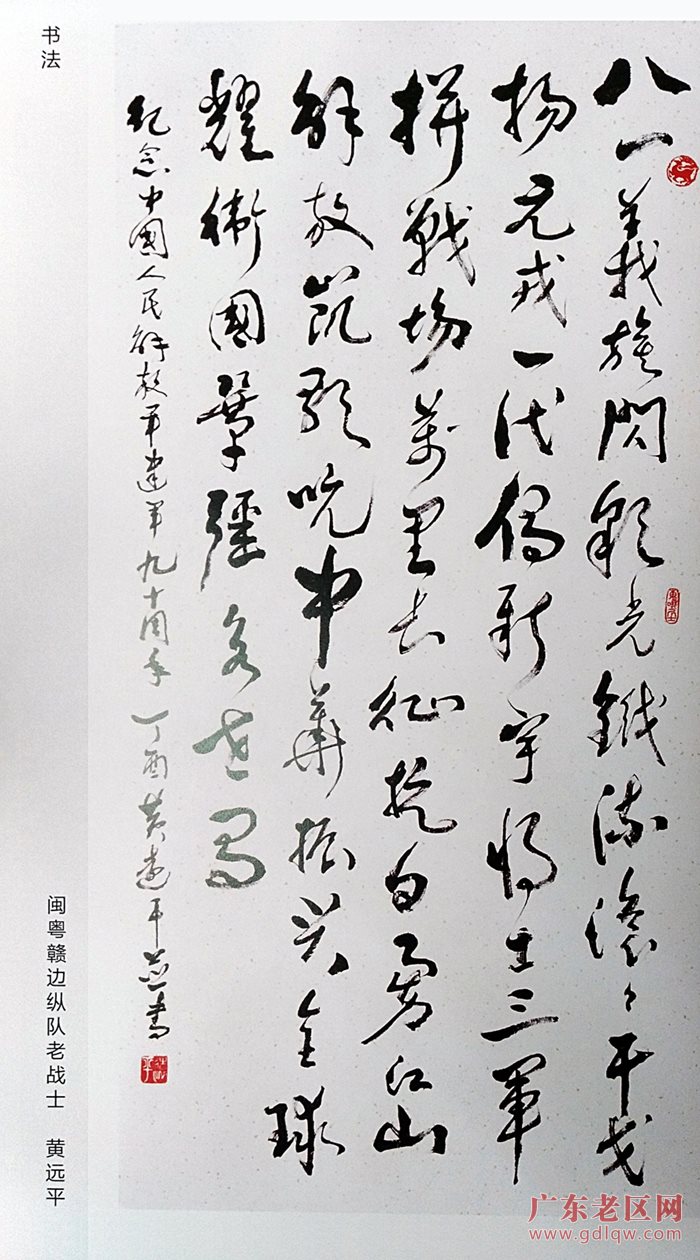 书法
八一義閃彩光鐵流滾々干戈
揚元戎一代新宇將士三軍
拼戰場萬里長征抗日江山
解放凱歌吭中華振兴全球
耀衛國疆
紀念中國人民解放軍建軍九十周年 丁酉黄遠平並書
闽粤赣边纵队老战士 黄远平
广东老区网
www.gdlqw.com